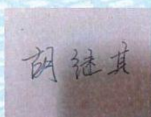 胡继其